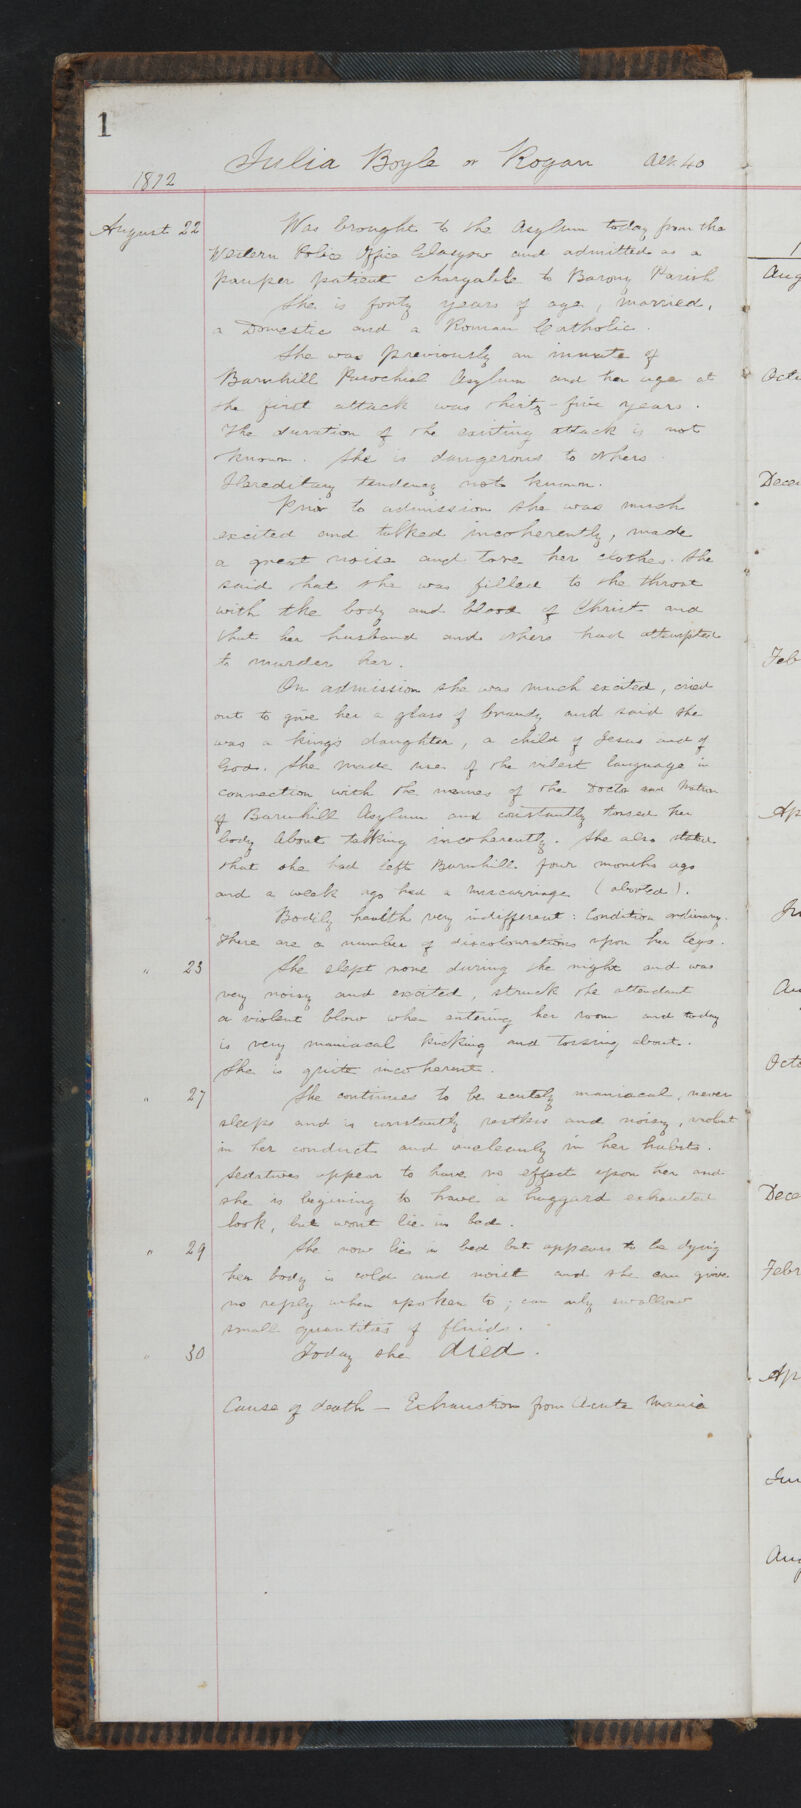 1
Julia Boyle or Rogan aet. 40
1872
August 22 Was brought to the Asylum today from the
Western Police Office Glasgow and admitted as a
pauper patient chargable to Barony Parish
She is forty years of age, married,
a Domestic and a Roman Catholic.
She was previously an inmate of
Barnhill Parochial Asylum and her age at
the first attack was thirty-five years.
The duration of the existing attack is not
known. She is dangerous to others.
Hereditary tendency not known.
Prior to admission she was much
excited and talked incoherently, made
a great noise and tore her clothes. She
said that she was filled to the throat
with the body and blood of Christ and
that her husband and others had attempted
to murder her.
On admission she was much excited, cried
out to give her a glass of brandy and said she
was a king's daughter, a child of Jesus and of
God. She made use of the vilest language in
connection with the names of the Doctor and Matron
of Barnhill Asylum and constantly tossed her
body about talking incoherently. She also stated
that she had left Barnhill four months ago
and a week ago had a miscarriage (aborted).
Bodily health very indifferent: Condition ordinary.
There are a number of discolourations upon her legs.
" 23 She slept none during the night and was
very noisy and excited, struck the attendant
a violent blow when entering her room and today
is very maniacal kicking and tossing about.
She is quite incoherent.
" 27 She continues to be acutely maniacal, never
sleeps and is constantly restless and noisy, violent
in her conduct and uncleanly in her habits.
Sedatives appear to have no effect upon her and
she is begining to have a haggard exhausted
look, but wont lie in bed.
" 29 She now lies in bed but appears to be dying
her body is cold and moist and she can give
no reply when spoken to; can only swallow
small quantities of fluids.
" 30 Today she died.
Cause of death — Exhaustion from Acute Mania
1
Aug
Octo
Dece
Feb
Ap
Ju
Au
Octo
Dece
Febr
Ap
Jun
Aug